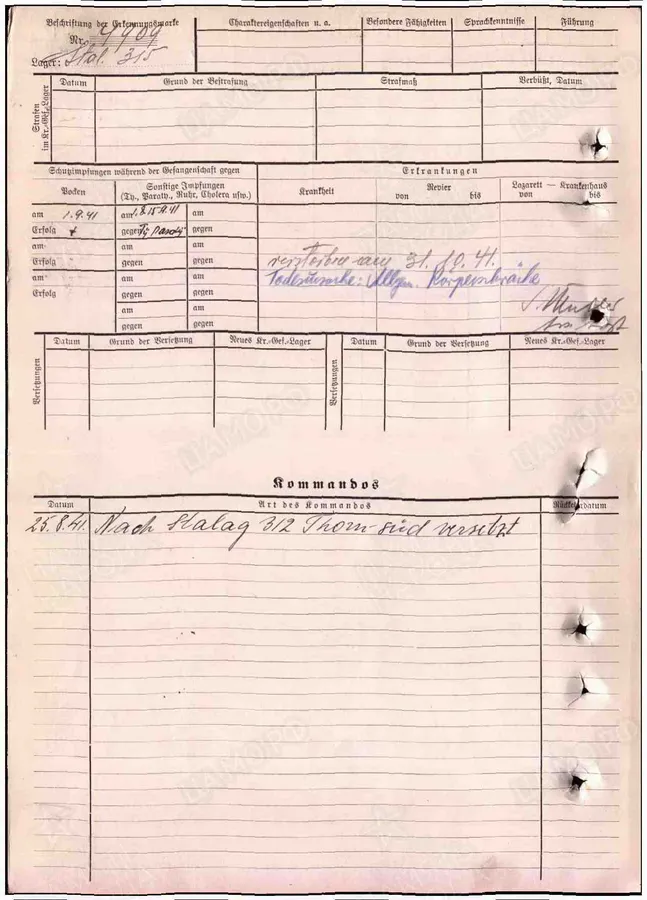 Beschriftung der Erkennungsmarke
Nr. 4909
Lager: Stal. 315
Charaktereigenschaften u. a.
Besondere Fähigkeiten
Sprachkenntnisse
Führung
Strafen im Kr.-Gef.-Lager
Datum
Grund der Bestrafung
Strafmaß
Verbüßt, Datum
Schutzimpfungen während der Gefangenschaft gegen
Erkrankungen
Pocken
Sonstige Impfungen
(Ty., Paraty., Ruhr, Cholera usw.)
Krankheit
Revier
von bis
Lazarett — Krankenhaus
von bis
am 1.9.41 am am
Erfolg + gegen gegen
am am am
Erfolg gegen gegen
am am am
Erfolg gegen gegen
am am
gegen gegen
verstorben am 31.10.41.
Todesursache: Allgem. Körperschwäche
Versetzungen
Datum
Grund der Versetzung
Neues Kr.-Gef.-Lager
Versetzungen
Datum
Grund der Versetzung
Neues Kr.-Gef.-Lager
Kommandos
Datum
Art des Kommandos
Rückkehrdatum
25.8.41. Nach Stalag 312 Thorn-süd versetzt
ЦАМО РФ